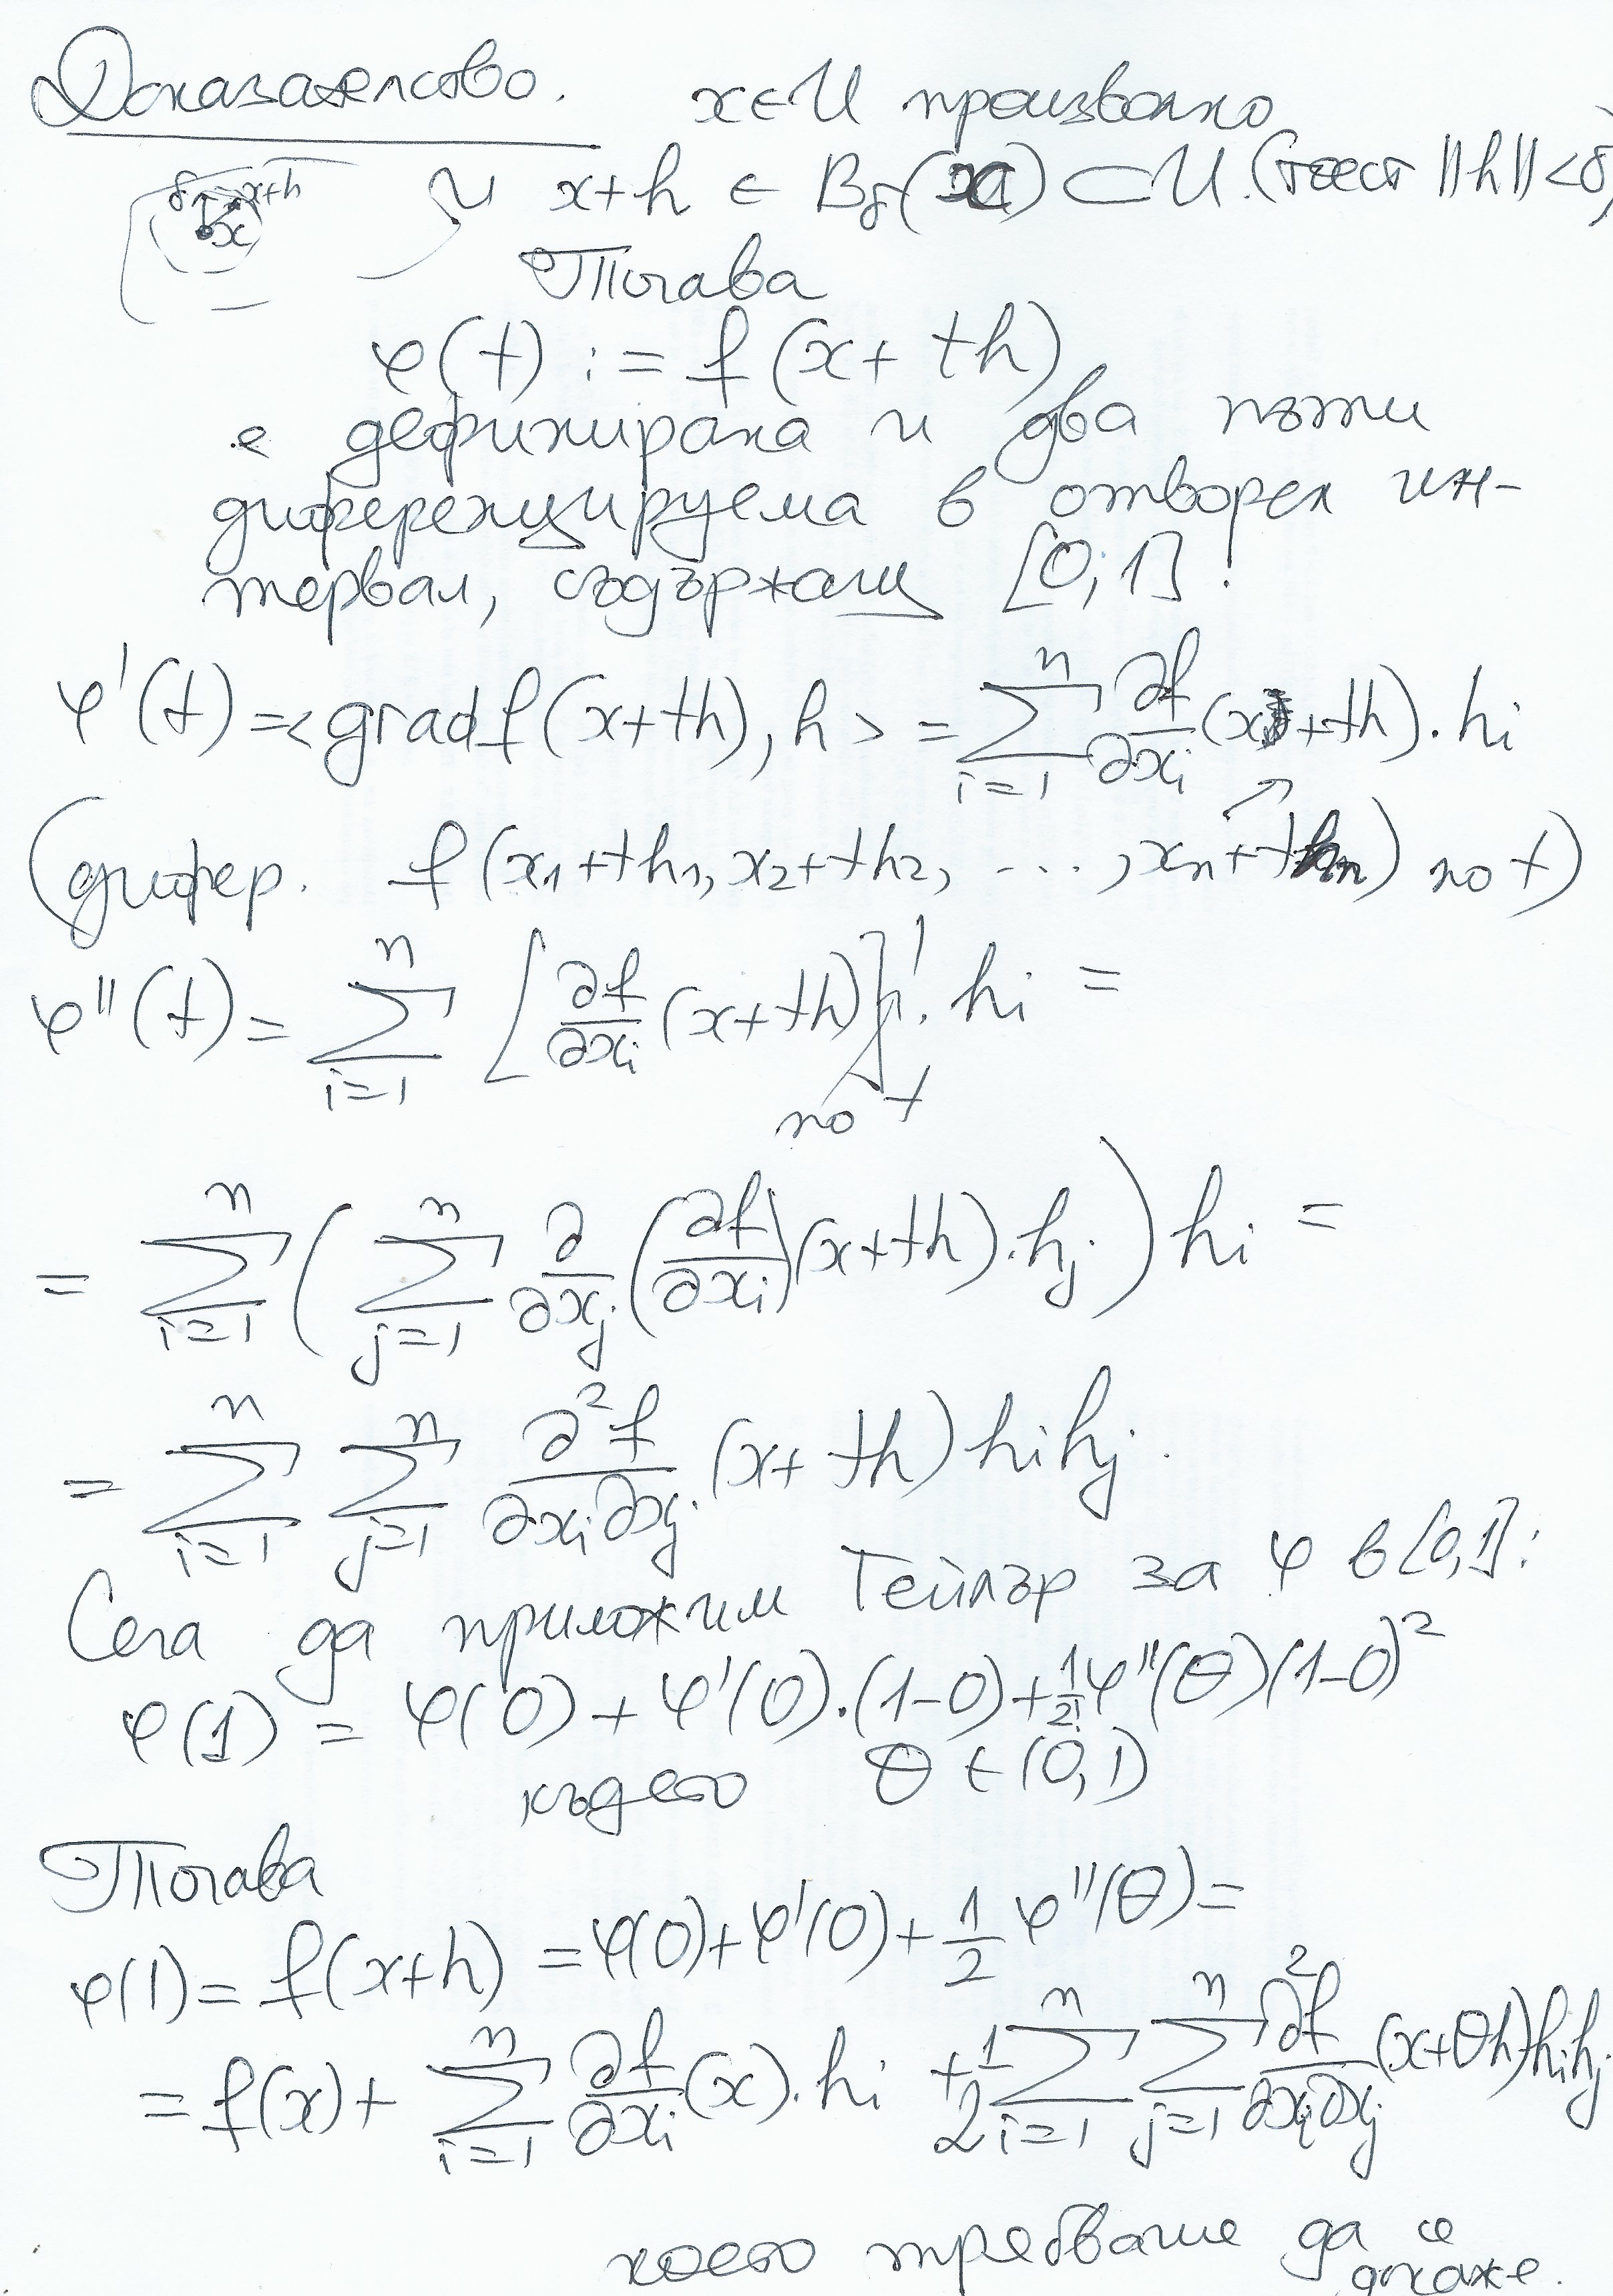 Доказателство. x∈U произволно
и x+h ∈ B_δ(x) ⊂ U. (т.е. ||h|| < δ)
δ x+h
x
Тогава
φ(t) := f(x+th)
е дефинирана и два пъти
диференцируема в отворен ин-
тервал, съдържащ [0;1]!
φ'(t) = <grad f(x+th), h> = ∑_{i=1}^{n} ∂f/∂x_i (x+th).h_i
(дифер. f(x_1+th_1, x_2+th_2, ..., x_n+th_n) по t)
φ''(t) = ∑_{i=1}^{n} [∂f/∂x_i (x+th)]'. h_i =
по t
= ∑_{i=1}^{n} (∑_{j=1}^{n} ∂/∂x_j (∂f/∂x_i)(x+th).h_j) h_i =
= ∑_{i=1}^{n} ∑_{j=1}^{n} ∂²f/∂x_i∂x_j (x+th) h_i h_j.
Сега да приложим Тейлър за φ в [0,1]:
φ(1) = φ(0) + φ'(0).(1-0) + 1/2! φ''(θ)(1-0)²
където θ ∈ (0,1)
Тогава
φ(1) = f(x+h) = φ(0)+φ'(0)+ 1/2 φ''(θ) =
= f(x) + ∑_{i=1}^{n} ∂f/∂x_i (x).h_i + 1/2 ∑_{i=1}^{n} ∑_{j=1}^{n} ∂²f/∂x_i∂x_j (x+θh)h_i h_j
което трябваше да се
докаже.